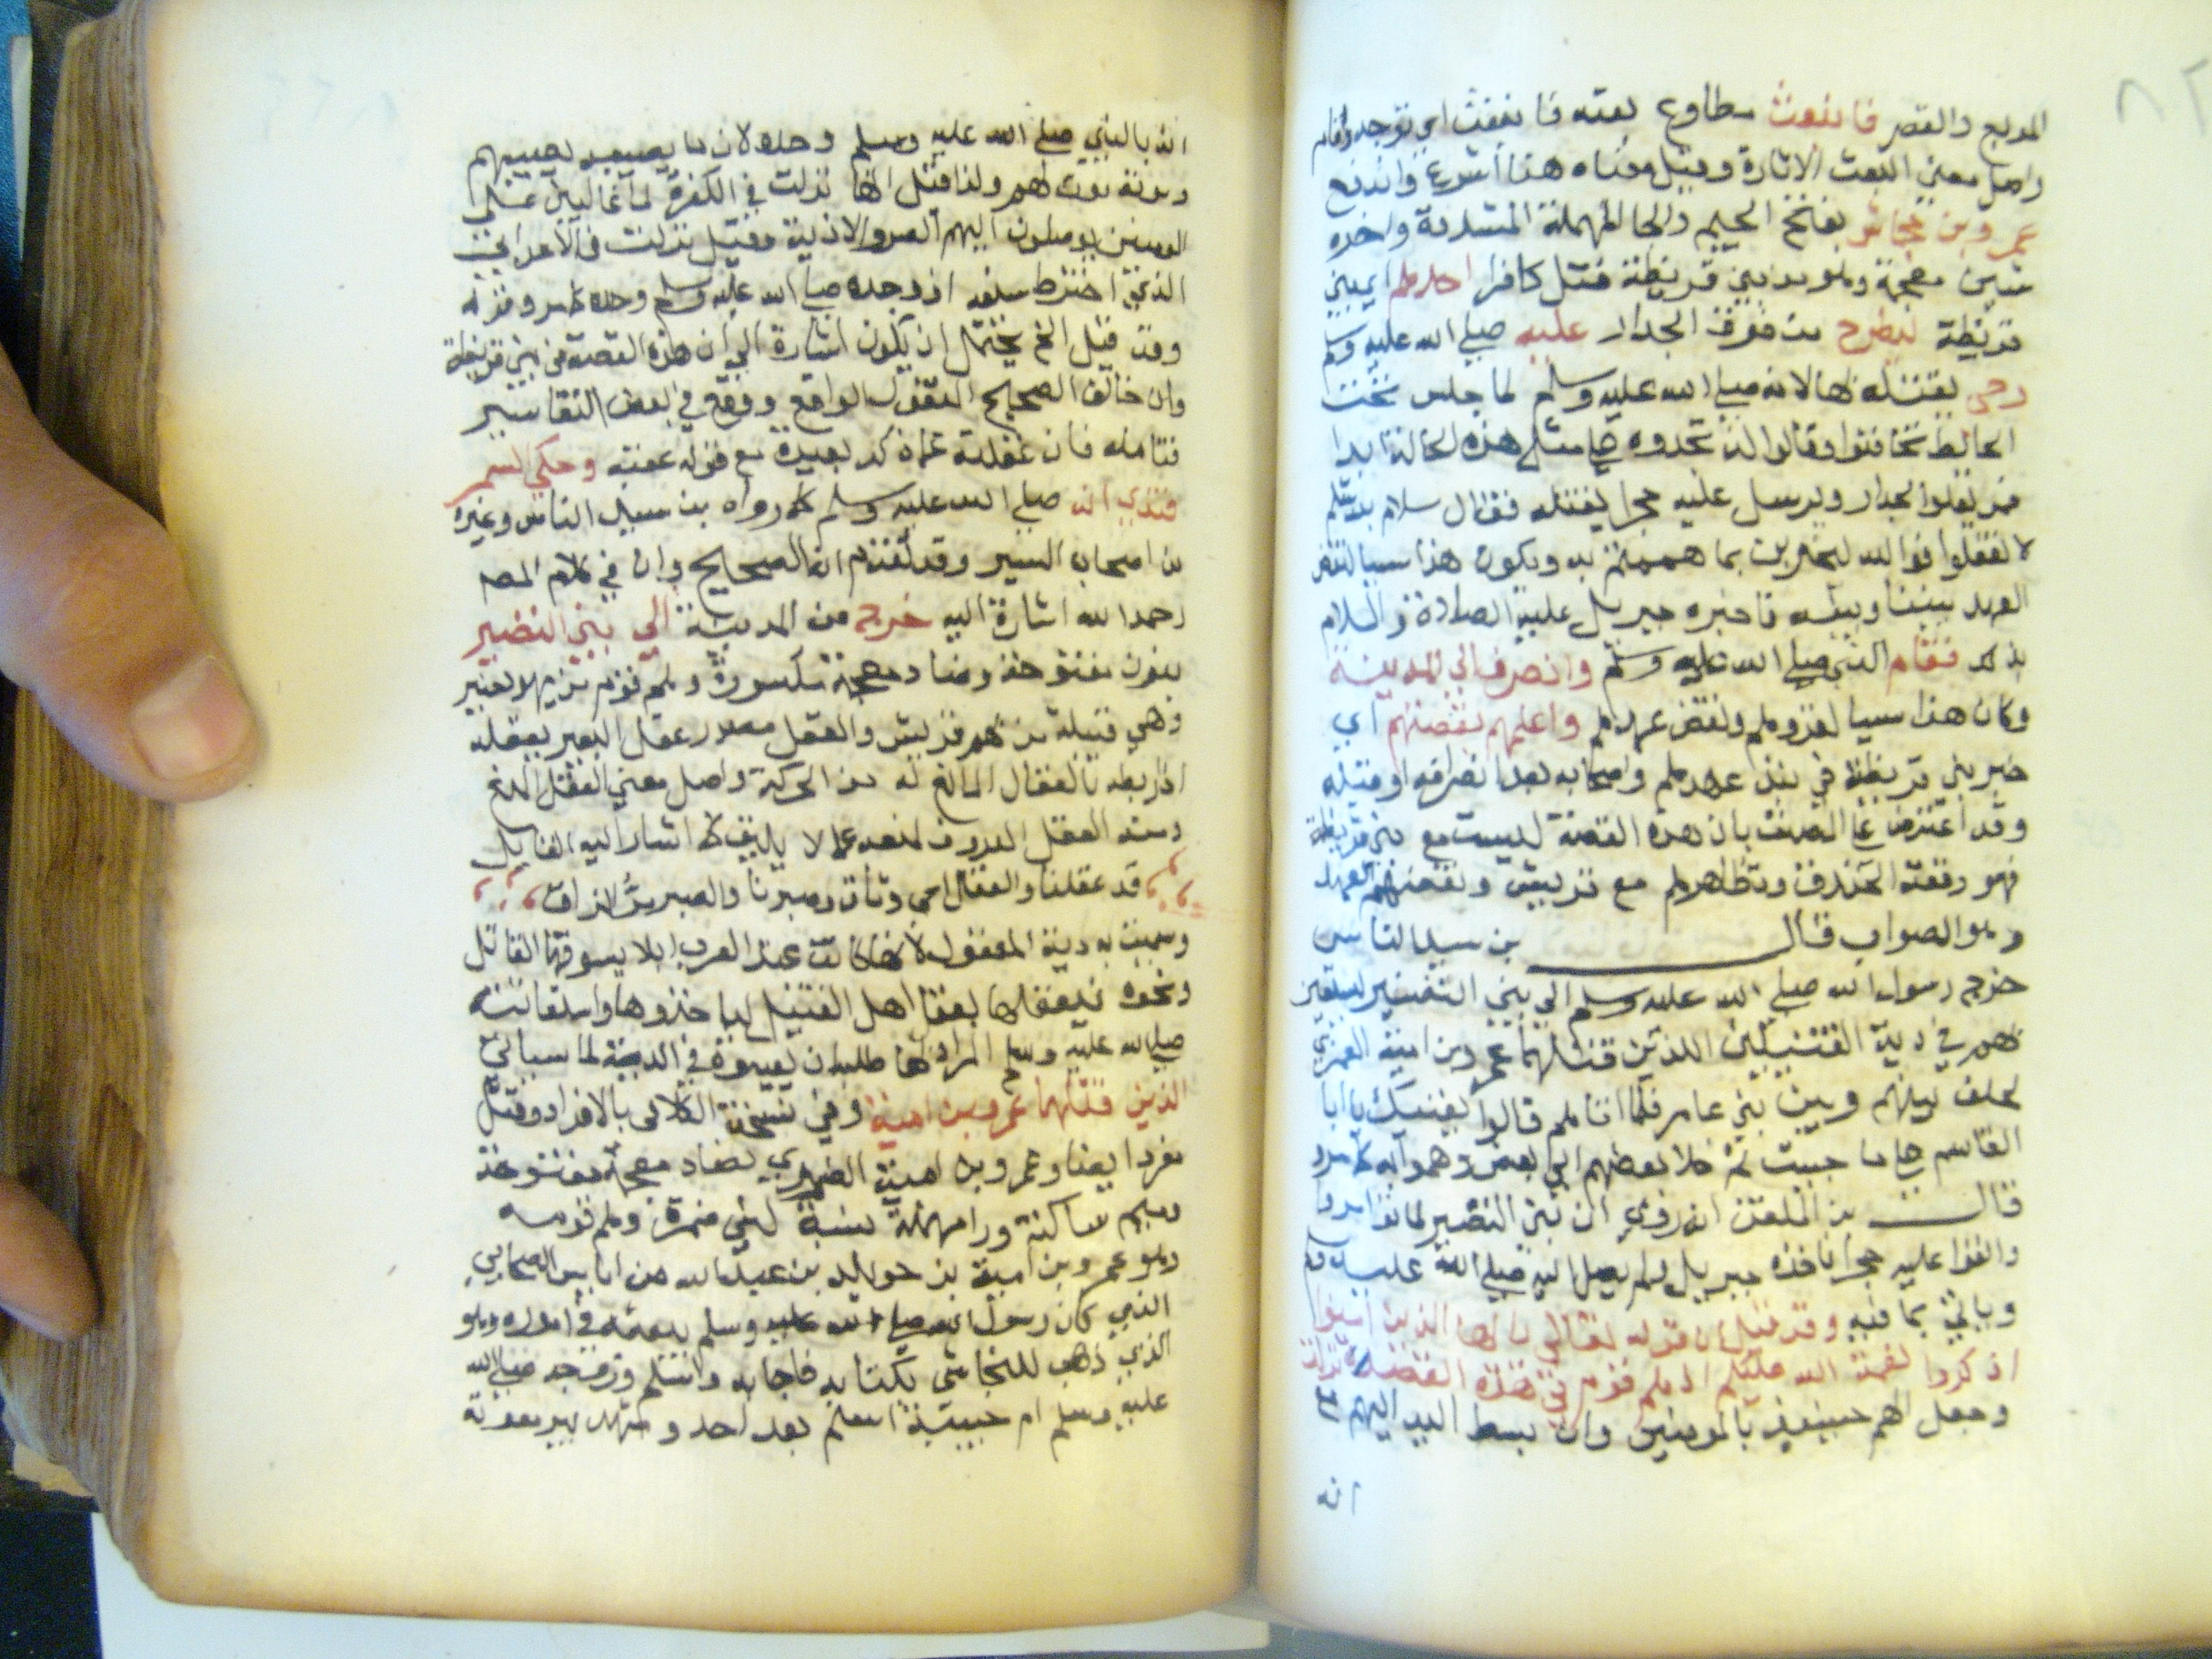 المدبح والقصر فانبعث مطاوع بعثه فانبعث اي توجه وقام
واصل معني البعث الاثارة وقيل معناه هنا اسرع واندفع
عمرو بن جحاش بفتح الجيم والحا المهملة المشددة واخره
شين معجمة وهو من بني قريظة قتل كافرا احدهم اي بني
قريظة ليطرح من فوق الجدار عليه صلي الله عليه وسلم
رحي لقتله بها لانه صلي الله عليه وسلم لما جلس تحت
الحائط تخافتوا وقالوا لن تجدوه علي مثل هذه الحالة ابدا
فمن يعلوا الجدار ويرسل عليه حجرا يقتله فقال سلام بن مشكم
لا تفعلوا فوالله ليخبرن بما هممتم به ويكون هذا سببا لنقض
العهد بيننا وبينه فاخبره جبريل عليه الصلاة والسلام
بذلك فقام النبي صلي الله عليه وسلم وانصرف الي المدينة
وكان هذا سببا لغزوهم ولنقض عهدهم واعلمهم بقصتهم اي
خبر بني قريظة في نبذ عهدهم واصحابه بعد انصرافه او قبله
وقد اعترض علي المصنف بان هذه القصة ليست مع بني قريظة
فهو وقعة الخندق وتظاهرهم مع قريش ونقضهم العهد
وهو الصواب قال بن سيد الناس
خرج رسول الله صلي الله عليه وسلم الي بني النضير ليستعين
بهم في دية القتيلين اللذين قتلهما عمرو بن امية الضمري
لحلف بينهم وبين بني عامر فلما اتاهم قالوا نعينك يا ابا
القاسم علي ما احببت ثم خلا بعضهم الي بعض وهموا به كما مر
قال بن الملقن انه روي ان بني النضير لما
والقوا عليه حجرا فاخذه جبريل لم يصل اليه صلي الله عليه وسلم
وياتي بما فيه وقد قيل ان قوله تعالي يا ايها الذين امنوا
اذكروا نعمة الله عليكم اذ هم قوم في هذه القصة نزلت
وجعل الهم حينئذ بالمومنين وان بسط اليد اليهم مع
انه
انه بالنبي صلي الله عليه وسلم وحده لان ما يصيبه يصيبهم
وموته موت لهم ولذا قيل انها نزلت في الكفرة لما
المومنين يوصلون اليهم الضرر والاذية وقيل نزلت في الاعرابي
الذي اخترط سيفه اذ وجده صلي الله عليه وسلم وحده كما مر وقوله
وقد قيل الخ يحتمل ان يكون اشارة الي ان هذه القصة في بني قريظة
وان خالف الصحيح المنقول الواقع ووقع في بعض التفاسير
فتامله فان غفلته عما ذكر بعيدة مع قوله عقبه وحكي السمر
قندي انه صلي الله عليه وسلم كما رواه بن سيد الناس وغيره
من اصحاب السير وقد تقدم انه الصحيح وان في كلام المصـ
رحمه الله اشارة اليه خرج من المدينة الي بني النضير
بنون مفتوحة وضاد معجمة مكسورة وهم قوم من يهود خيبر
وهي قبيلة من قريش والعقل مصدر عقل البعير يعقله
اذا ربطه بالعقال المانع له من الحركة واصل معني العقل المنع
ومنه العقل المعروف لمنعه عما لا يليق كما اشار اليه القايل
قد عقلنا والعقل اي وثاق وصبرنا والصبر مر المذاق
وسميت به دية المقتول لانها كانت عند العرب ابلا يسوقها القاتل
ونحوه فيعقلها بفنا اهل القتيل لياخذوها واستعانته
صلي الله عليه وسلم المراد بها طلبه ان يعينوه في الدية لما سياتي
الذين قتلهما عمرو بن امية وفي نسخة الكلابي بالافراد وقتل
مفردا ايضا وعمرو بن امية الضمري بضاد معجمة مفتوحة
وميم ساكنة ورا مهملة نسبة لبني ضمرة وهم قومه
وهو عمرو بن امية بن خويلد بن عبد الله من اياس الصحابي
الذي كان رسول الله صلي الله عليه وسلم يبعثه في اموره وهو
الذي ذهب للنجاشي بكتابه فاجابه واسلم وزوجه صلي الله
عليه وسلم ام حبيبة اسلم بعد احد وشهد بير معونة